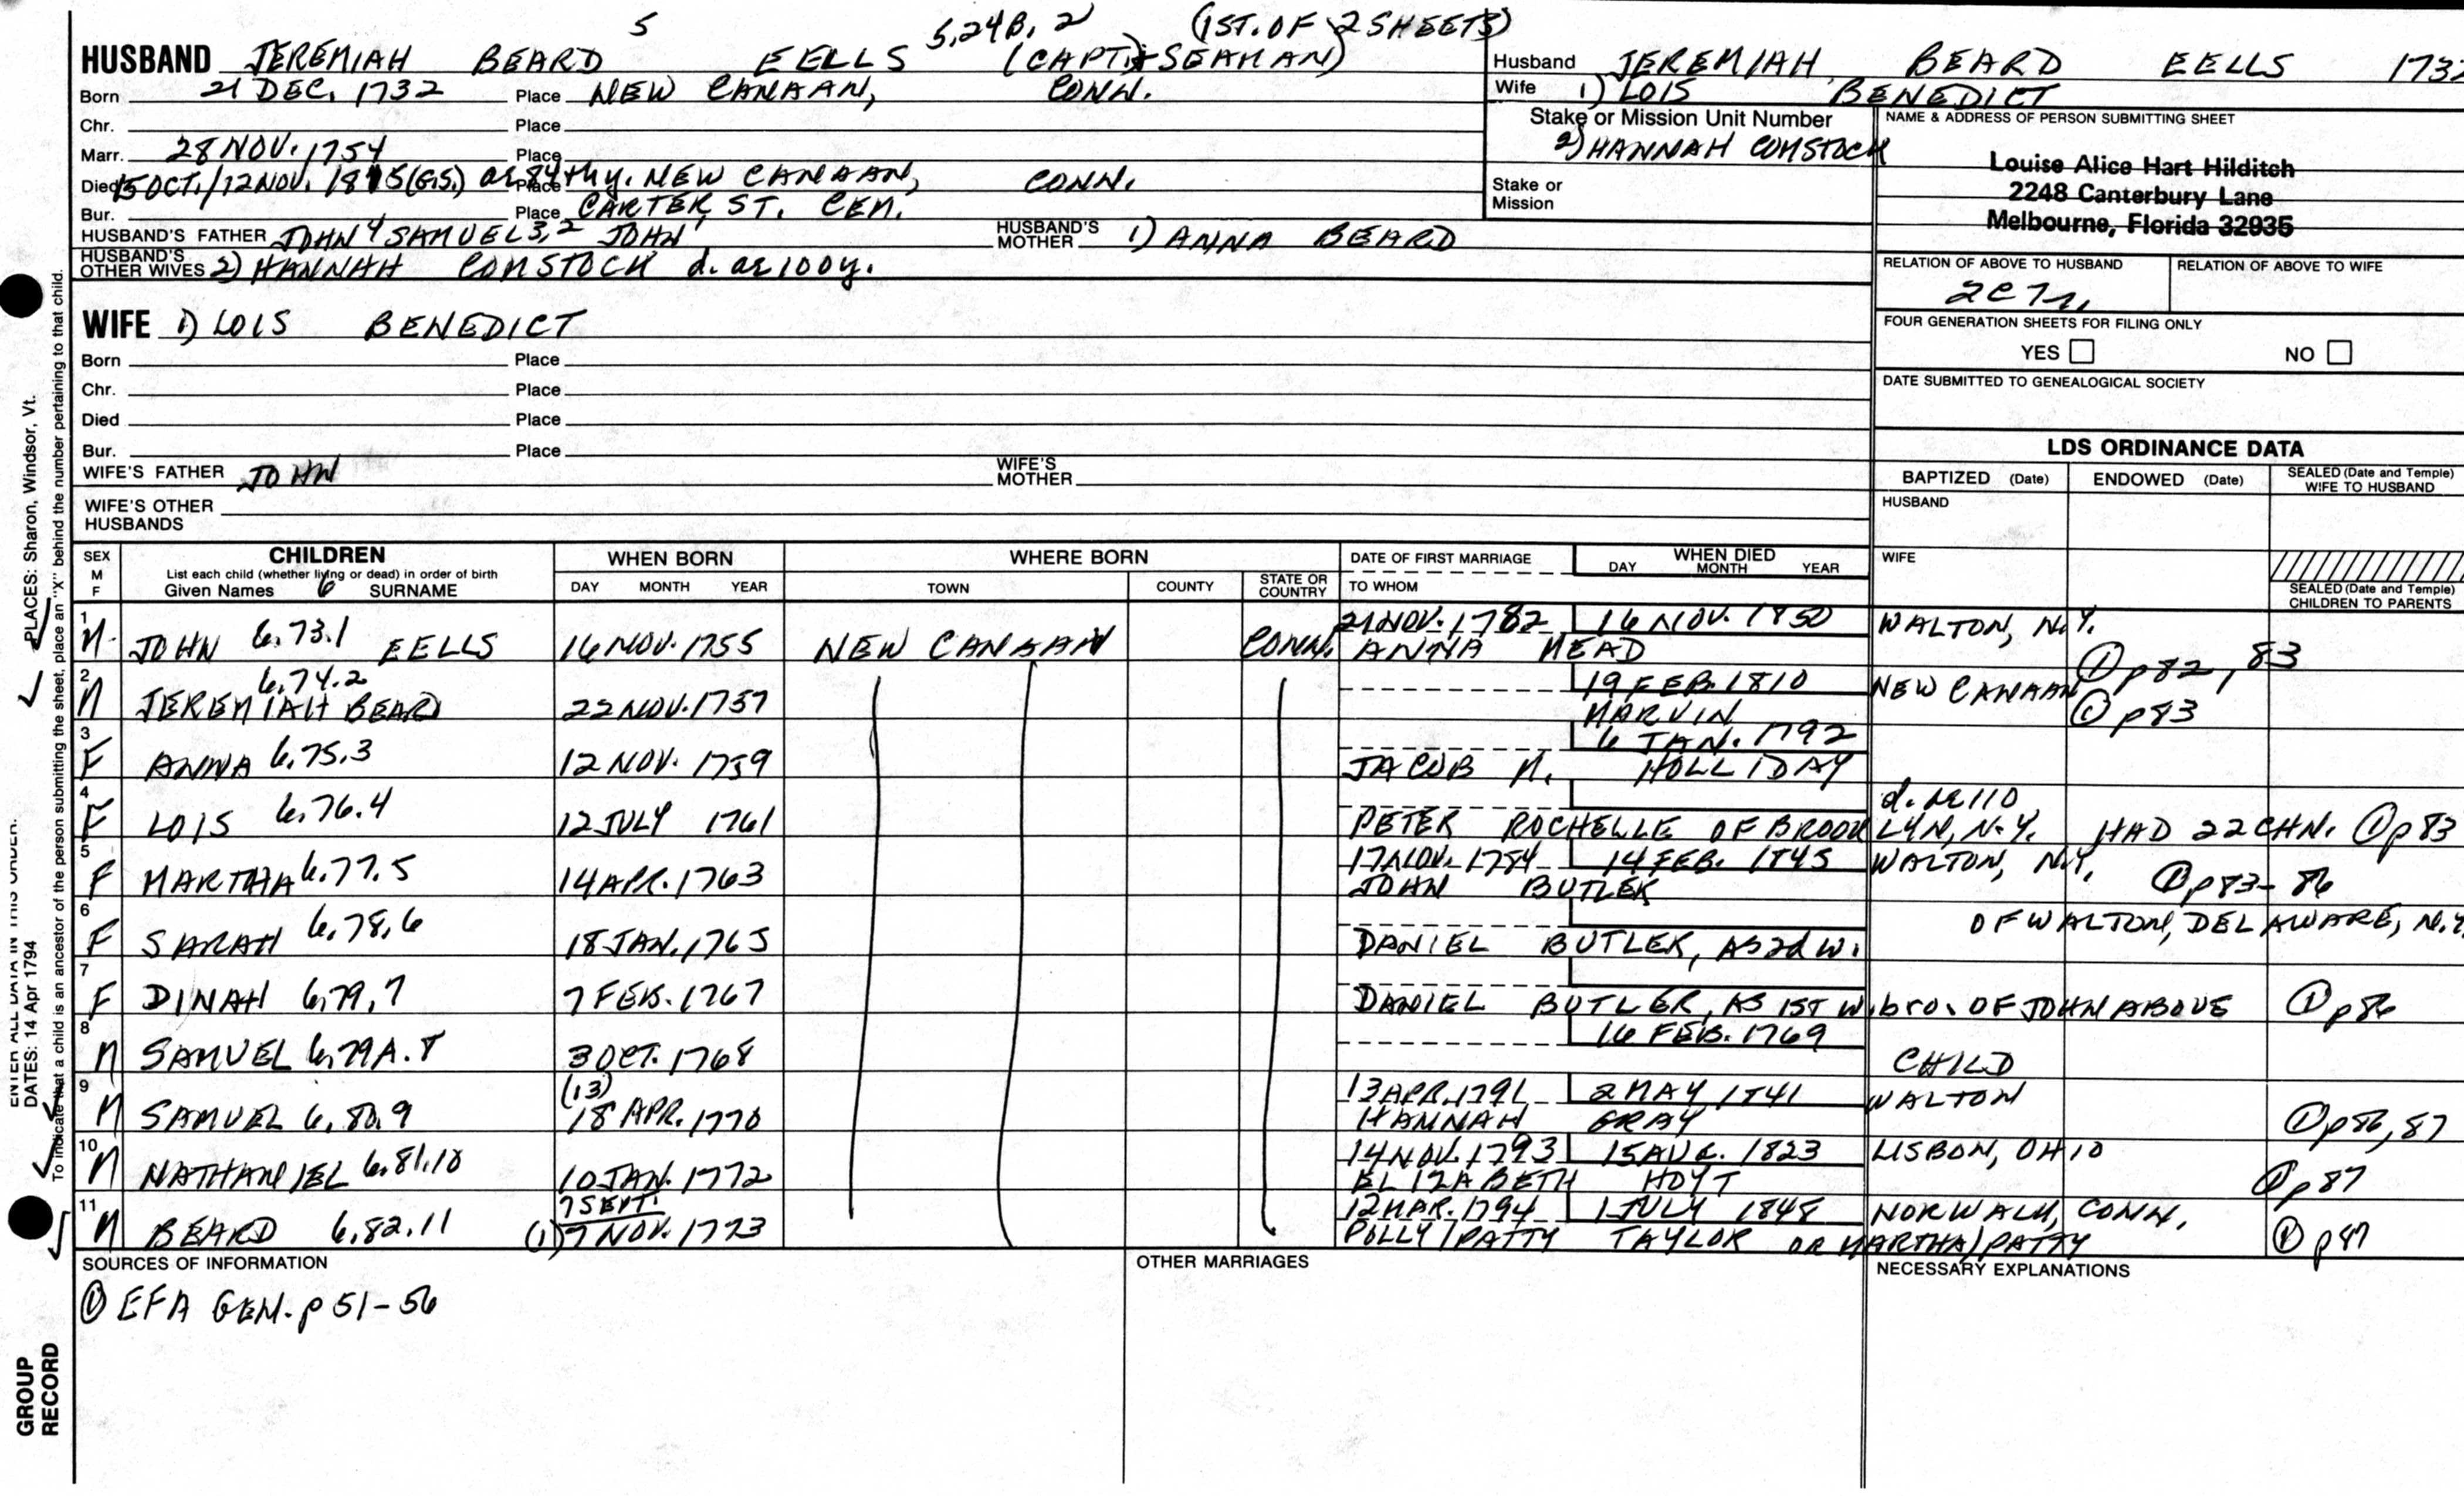 5 5,24B,2 (1ST. OF 2 SHEETS)
HUSBAND JEREMIAH BEARD EELLS (CAPT.)+SEAMAN)
Born 21 DEC. 1732 Place NEW CANAAN, CONN.
Chr. Place
Marr. 28 NOV. 1754 Place
Died 15 OCT./12 NOV. 1815 (G.S.) ae 84thy. Place NEW CANAAN, CONN.
Bur. Place CARTER ST. CEM.
HUSBAND'S FATHER JOHN4 SAMUEL3,2 JOHN1 HUSBAND'S MOTHER 1) ANNA BEARD
HUSBAND'S OTHER WIVES 2) HANNAH COMSTOCK d. ae 100y.
WIFE 1) LOIS BENEDICT
Born Place
Chr. Place
Died Place
Bur. Place
WIFE'S FATHER JOHN WIFE'S MOTHER
WIFE'S OTHER HUSBANDS
Husband JEREMIAH BEARD EELLS 1732
Wife 1) LOIS BENEDICT
Stake or Mission Unit Number
2) HANNAH COMSTOCK
Stake or Mission
NAME & ADDRESS OF PERSON SUBMITTING SHEET
Louise Alice Hart Hilditch
2248 Canterbury Lane
Melbourne, Florida 32935
RELATION OF ABOVE TO HUSBAND RELATION OF ABOVE TO WIFE
FOUR GENERATION SHEETS FOR FILING ONLY
YES NO
DATE SUBMITTED TO GENEALOGICAL SOCIETY
LDS ORDINANCE DATA
BAPTIZED (Date) ENDOWED (Date) SEALED (Date and Temple) WIFE TO HUSBAND
HUSBAND
WIFE
SEALED (Date and Temple) CHILDREN TO PARENTS
SEX M F CHILDREN WHEN BORN WHERE BORN DATE OF FIRST MARRIAGE WHEN DIED
List each child (whether living or dead) in order of birth DAY MONTH YEAR
Given Names 6 SURNAME DAY MONTH YEAR TOWN COUNTY STATE OR COUNTRY TO WHOM
21 NOV. 1782 16 NOV. 1850 WALTON, N.Y.
1 M JOHN 6.73.1 EELLS 16 NOV. 1755 NEW CANAAN CONN. ANNA MEAD ① p82, 83
6.74.2 19 FEB. 1810 NEW CANAAN
2 M JEREMIAH BEARD 22 NOV. 1757 MARVIN ① p83
6 JAN. 1792
3 F ANNA 6.75.3 12 NOV. 1759 JACOB M. HOLLIDAY
d. ae 110
4 F LOIS 6.76.4 12 JULY 1761 PETER ROCHELLE OF BROOKLYN, N.Y. HAD 22 CHN. ① p83
17 NOV. 1784 14 FEB. 1845 WALTON, N.Y.
5 F MARTHA 6.77.5 14 APR. 1763 JOHN BUTLER ① p83-86
OF WALTON, DELAWARE, N.Y.
6 F SARAH 6.78.6 18 JAN. 1765 DANIEL BUTLER, AS 2d W.
7 F DINAH 6.79.7 7 FEB. 1767 DANIEL BUTLER, AS 1ST W. bro. OF JOHN ABOVE ① p86
16 FEB. 1769
8 M SAMUEL 6.79A.8 3 OCT. 1768 CHILD
(13) 13 APR. 1791 2 MAY 1841 WALTON
9 M SAMUEL 6.80.9 18 APR. 1770 HANNAH GRAY ① p86, 87
14 NOV. 1793 15 AUG. 1823 LISBON, OHIO
10 M NATHANIEL 6.81.10 10 JAN. 1772 ELIZABETH HOYT ① p87
7 SEPT. 12 MAR. 1794 1 JULY 1848 NORWALK, CONN.
11 M BEARD 6.82.11 (1) 7 NOV. 1773 POLLY/PATTY TAYLOR OR MARTHA/PATTY ① p87
SOURCES OF INFORMATION OTHER MARRIAGES NECESSARY EXPLANATIONS
① EFA GEN. p 51-56
DATES: 14 Apr 1794
PLACES: Sharon, Windsor, Vt.
To indicate that a child is an ancestor of the person submitting the sheet, place an "X" behind the number pertaining to that child.
GROUP
RECORD